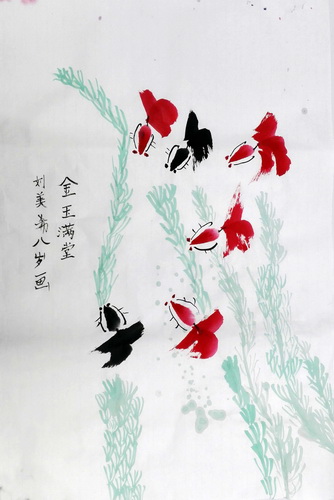 金王满堂
刘美 八岁画